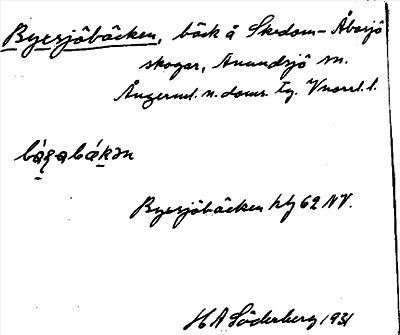 Byersjöbäcken, bäck å Skedom-Åbosjö
skogar, Anundsjö sn.
Ångerml. n. doms. tg. Vnorrl. l.
Byersjöbäcken hbj 62 NV.
H A Söderberg 1931